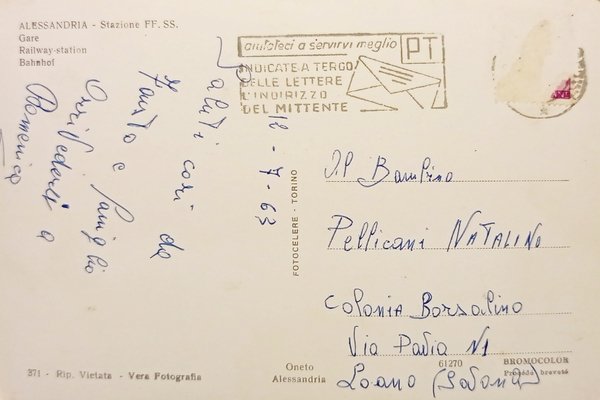 ALESSANDRIA - Stazione FF. SS.
Gare
Railway-station
Bahnhof
aiutateci a servirvi meglio
PT
INDICATE A TERGO
DELLE LETTERE
L'INDIRIZZO
DEL MITTENTE
12-7-63
Saluti cari da
Fausto e famiglia
Arrivederci a
Domenica
FOTOCELERE - TORINO
Al Bambino
Pellicani NATALINO
Colonia Borsalino
Via Pavia N1
Loano (Savona)
371 - Rip. Vietata - Vera Fotografia
Oneto
Alessandria
61270
BROMOCOLOR
Procédé breveté